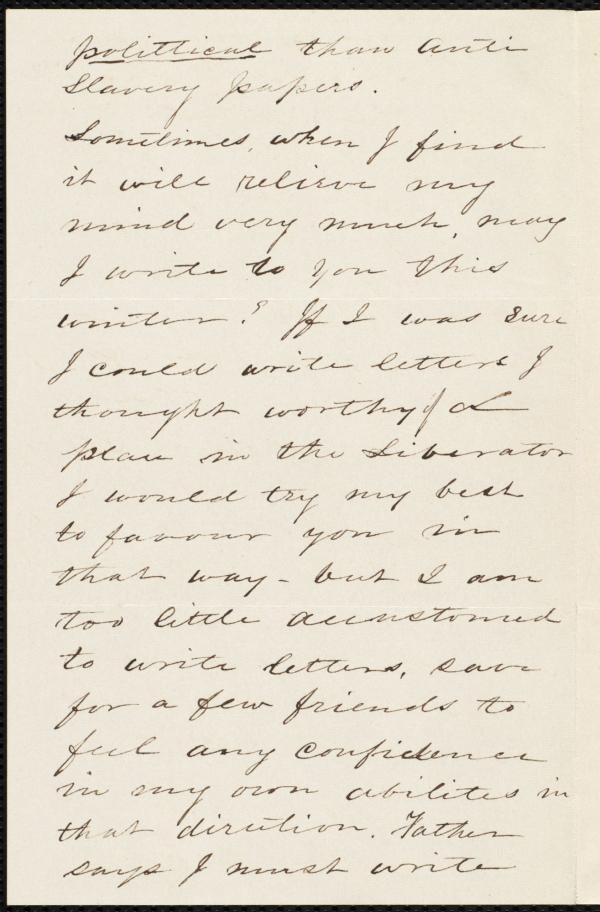 polittical than Anti
Slavery papers.
Sometimes, when I find
it will relieve my
mind very much, may
I write to you this
winter? If I was sure
I could write letters I
thought worthy of a
place in the Liberator
I would try my best
to favour you in
that way - but I am
too little accustomed
to write letters, save
for a few friends to
feel any confidence
in my own abilites in
that direction. Father
says I must write